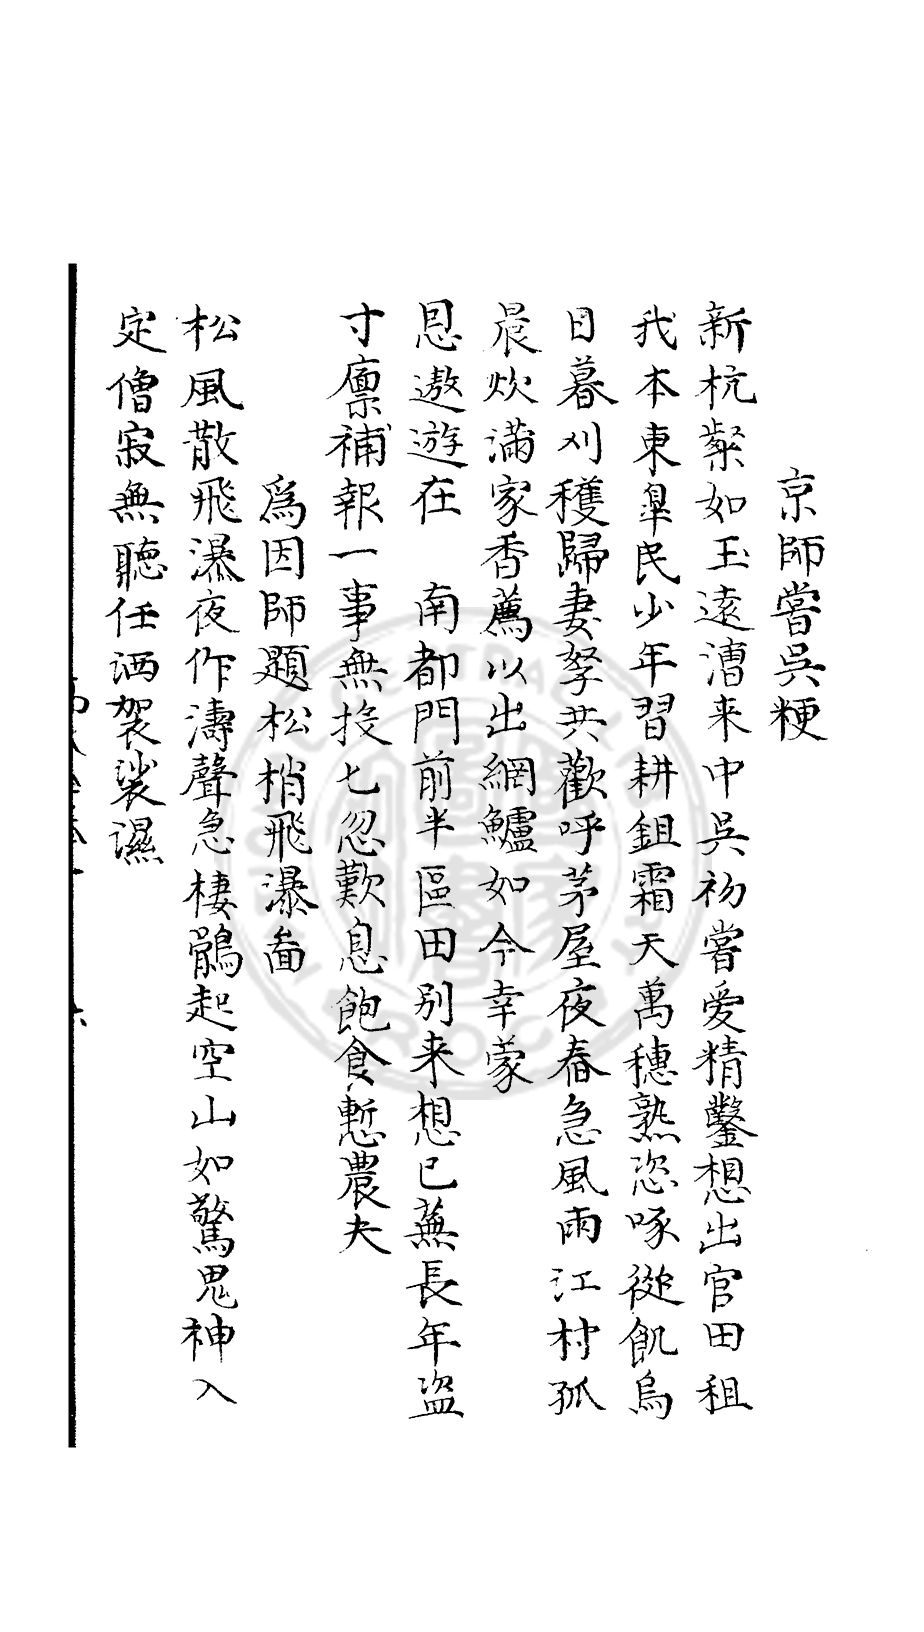 京師嘗吳粳
新杭粲如玉遠漕来中吳初嘗愛精鑿想出官田租
我本東臯民少年習耕鉏霜天萬穗熟恣啄從飢烏
日暮刈穫歸妻孥共歡呼茅屋夜舂急風雨江村孤
晨炊滿家香薦以出網鱸如今幸蒙
恩遨遊在　南都門前半區田别来想已蕪長年盜
寸廪補報一事無投匕忽歎息飽食慙農夫
為因師題松梢飛瀑畵
松風散飛瀑夜作濤聲急棲鶻起空山如驚鬼神入
定僧寂無聽任洒袈裟濕